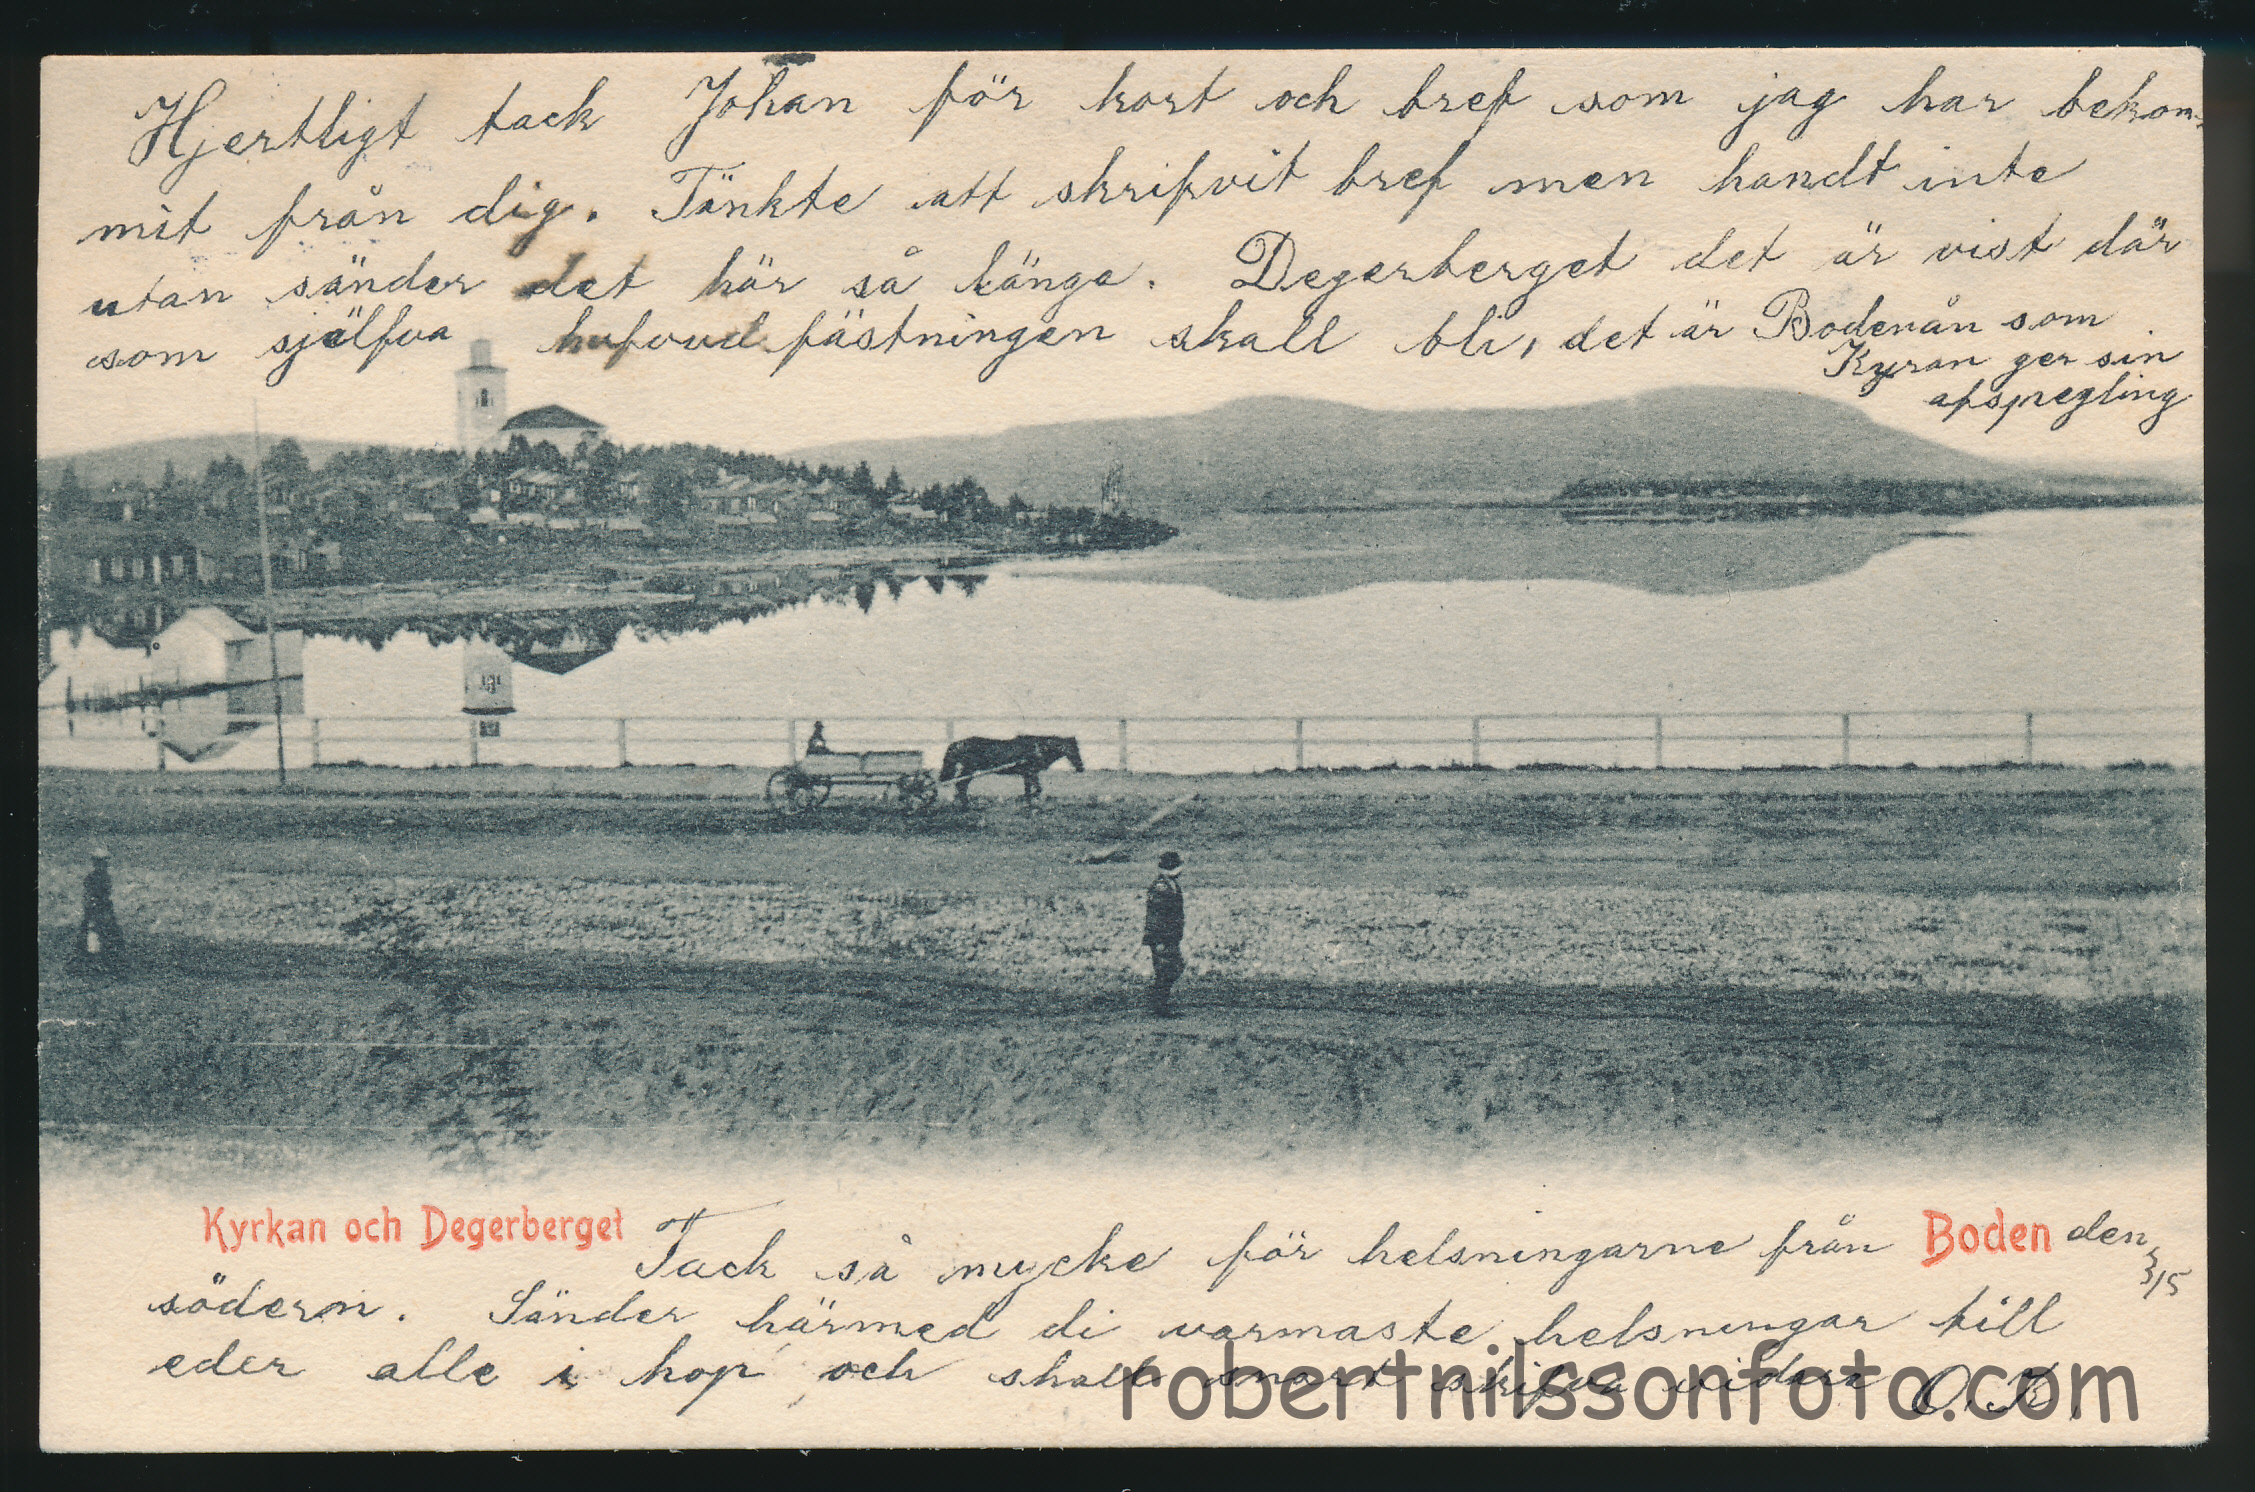 Hjertligt tack Johan för kort och bref som jag har bekom-
mit från dig. Tänkte att skrifvit bref men handt inte
utan sänder det här så länge. Degerberget det är vist där
som sjelfva hufvudfästningen skall bli, det är Bodenån som
Kyran ger sin
afspegling
Kyrkan och Degerberget Tack så mycke för helsningarne från Boden den
3/5
södern. Sänder härmed di varmaste helsningar till
eder alle i hop och skall snart skifva vidare O. K.
robertnilssonfoto.com